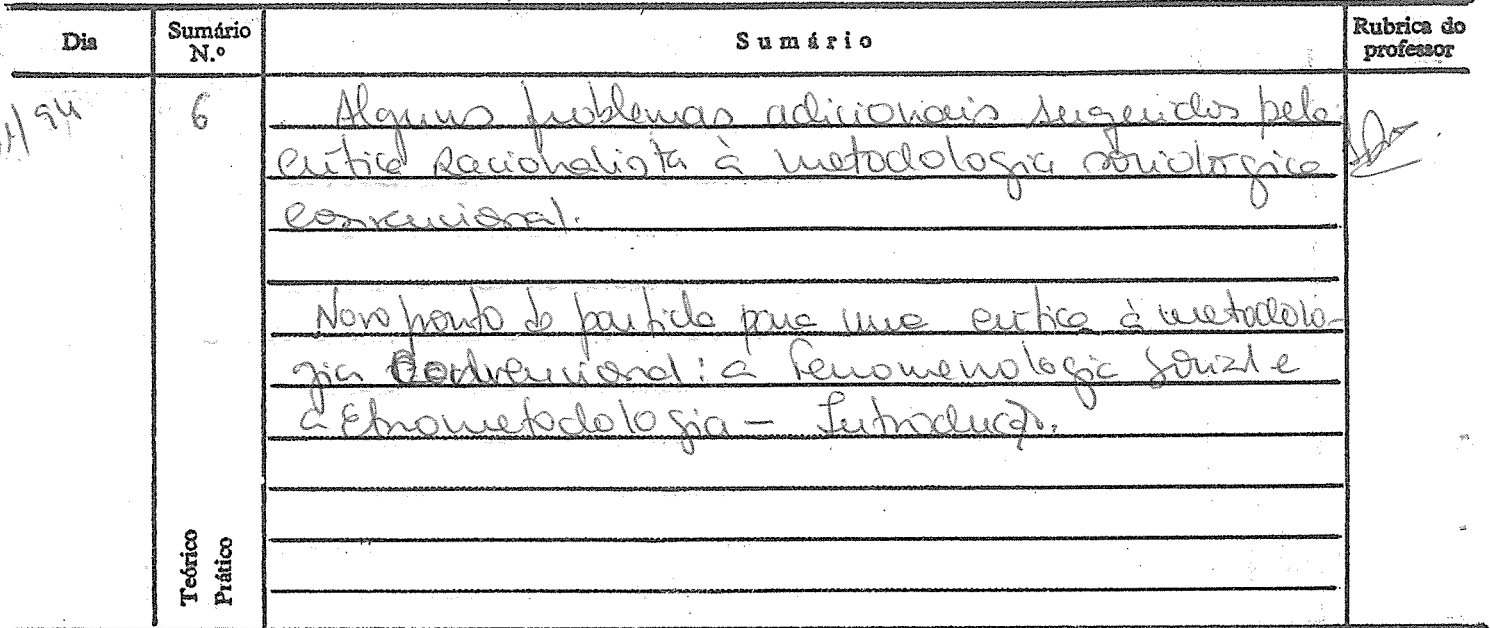 Dia Sumário N.º Sumário Rubrica do professor
/94 6 Alguns problemas adicionais sugeridos pela
crítica racionalista à metodologia sociológica
convencional.
Novo ponto de partida para uma crítica à metodolo-
gia convencional: a fenomenologia social e
a Etnometodologia – Introdução.
Teórico
Prático